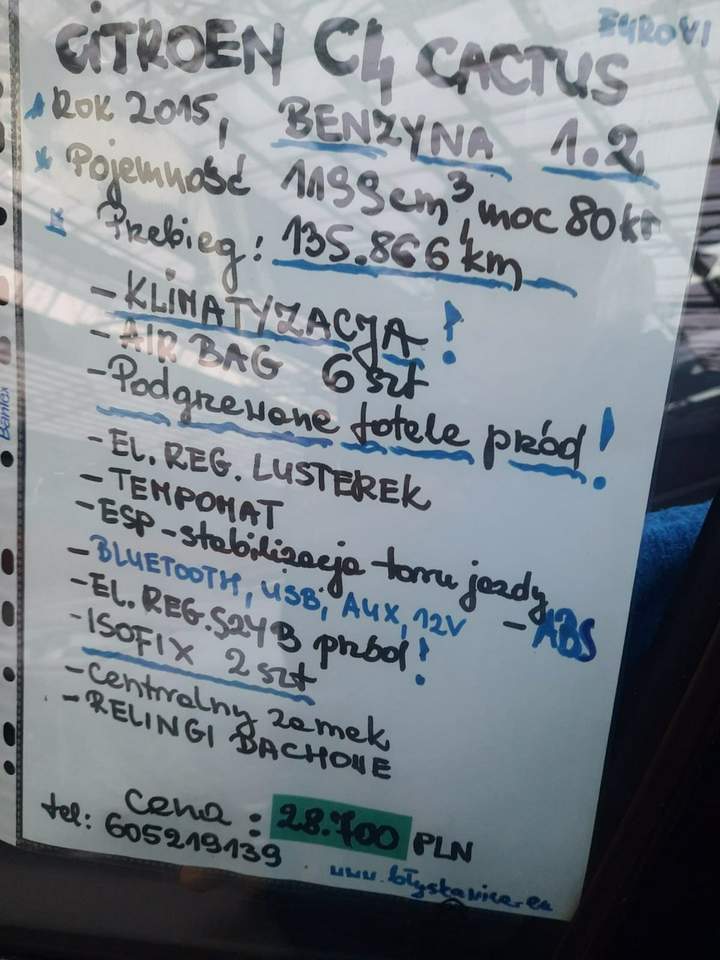 CITROEN C4 CACTUS
EURO VI
Rok 2015, BENZYNA 1.2
Pojemność 1199 cm³, moc 80 kr
Przebieg: 135.866 km
- KLIMATYZACJA!
- AIR BAG 6 szt
- Podgrzewane fotele przód!
- EL. REG. LUSTEREK
- TEMPOMAT
- ESP - stabilizacja toru jazdy
- BLUETOOTH, USB, AUX, 12V - ABS
- EL. REG. SZYB przód!
- ISOFIX 2 szt
- Centralny zamek
- RELINGI DACHOWE
Cena: 28.700 PLN
tel: 605219139
www.blyskavica.eu
Bantex